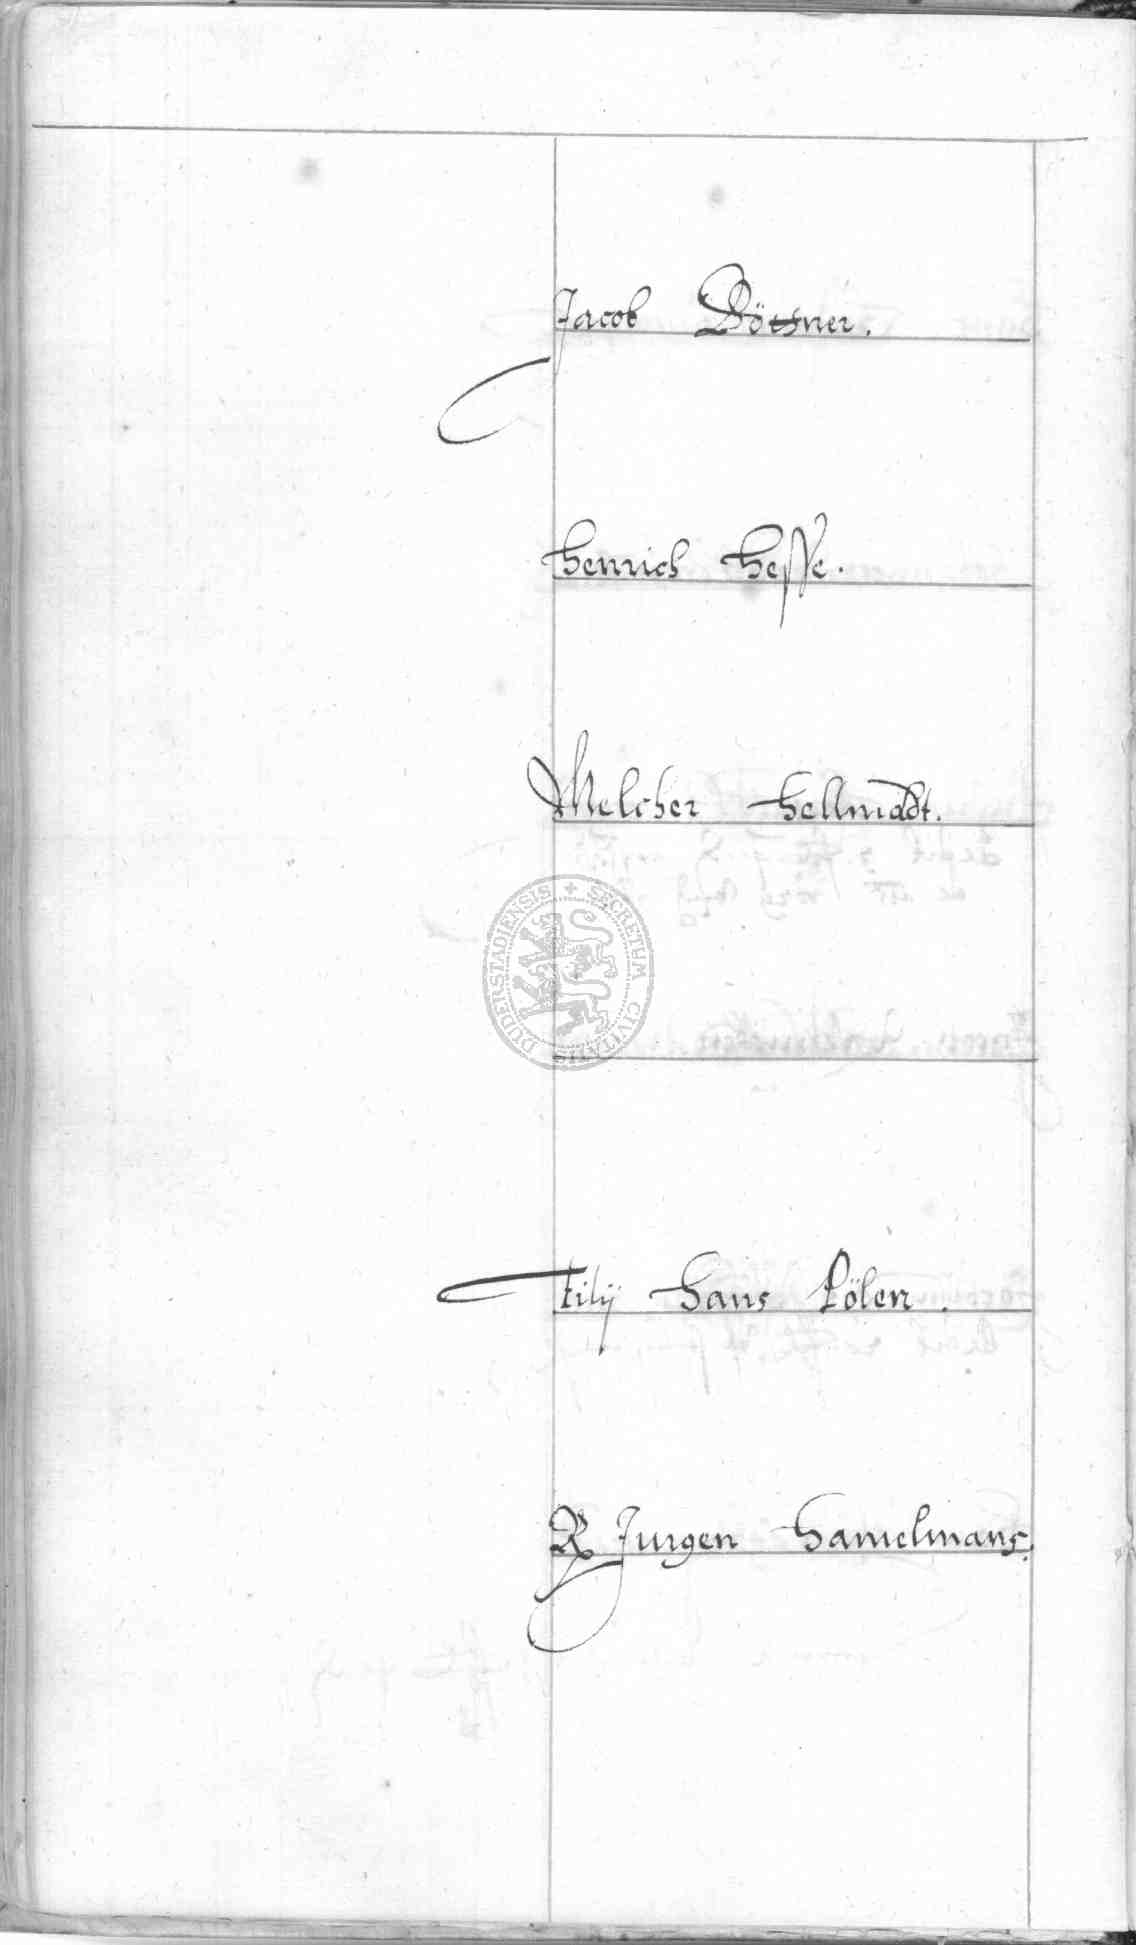 Jacob Böttner.
Henrich Hesse.
Melcher Hellmadt.
SECRETUM CIVITATIS DUDERSTADIENSIS
filij Hans Pölen.
Jurgen Hamelmans.